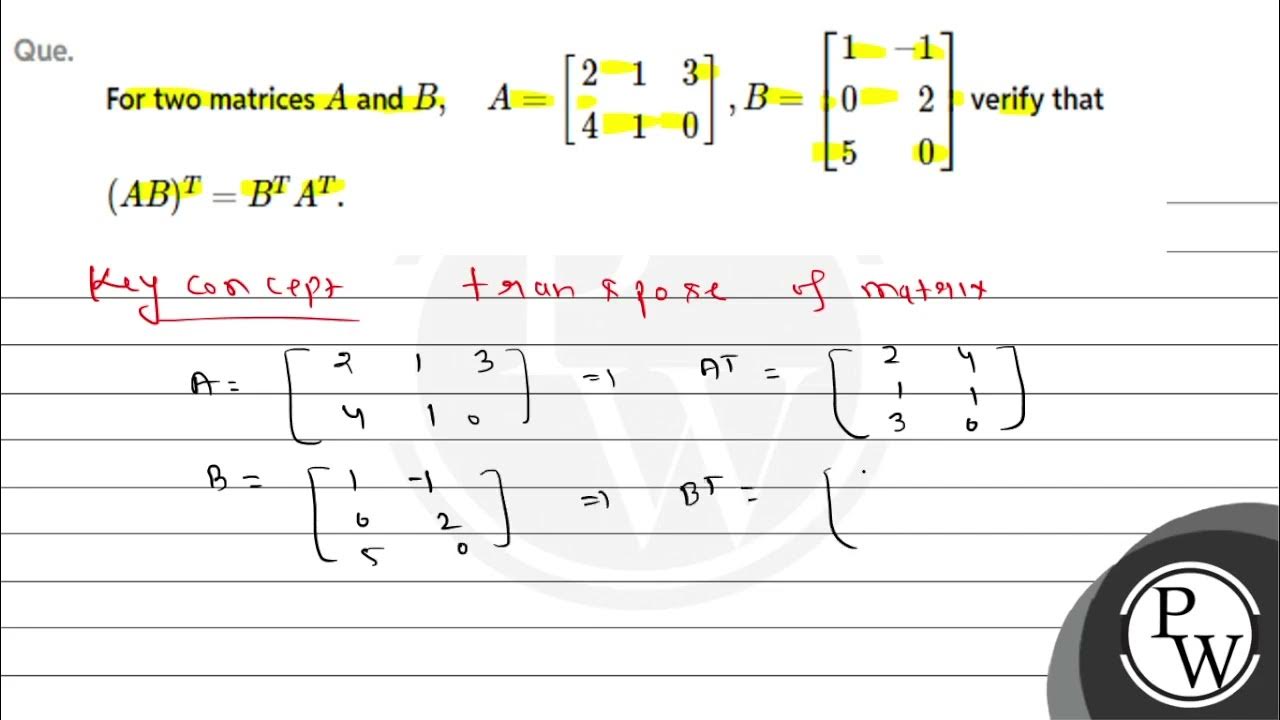 Que.
For two matrices A and B, A = [2 1 3
4 1 0], B = [1 −1
0 2
5 0] verify that
(AB)^T = B^T A^T.
Key concept transpose of matrix
A = [2 1 3
4 1 0] => A^T = [2 4
1 1
3 0]
B = [1 -1
0 2
5 0] => B^T = [
PW